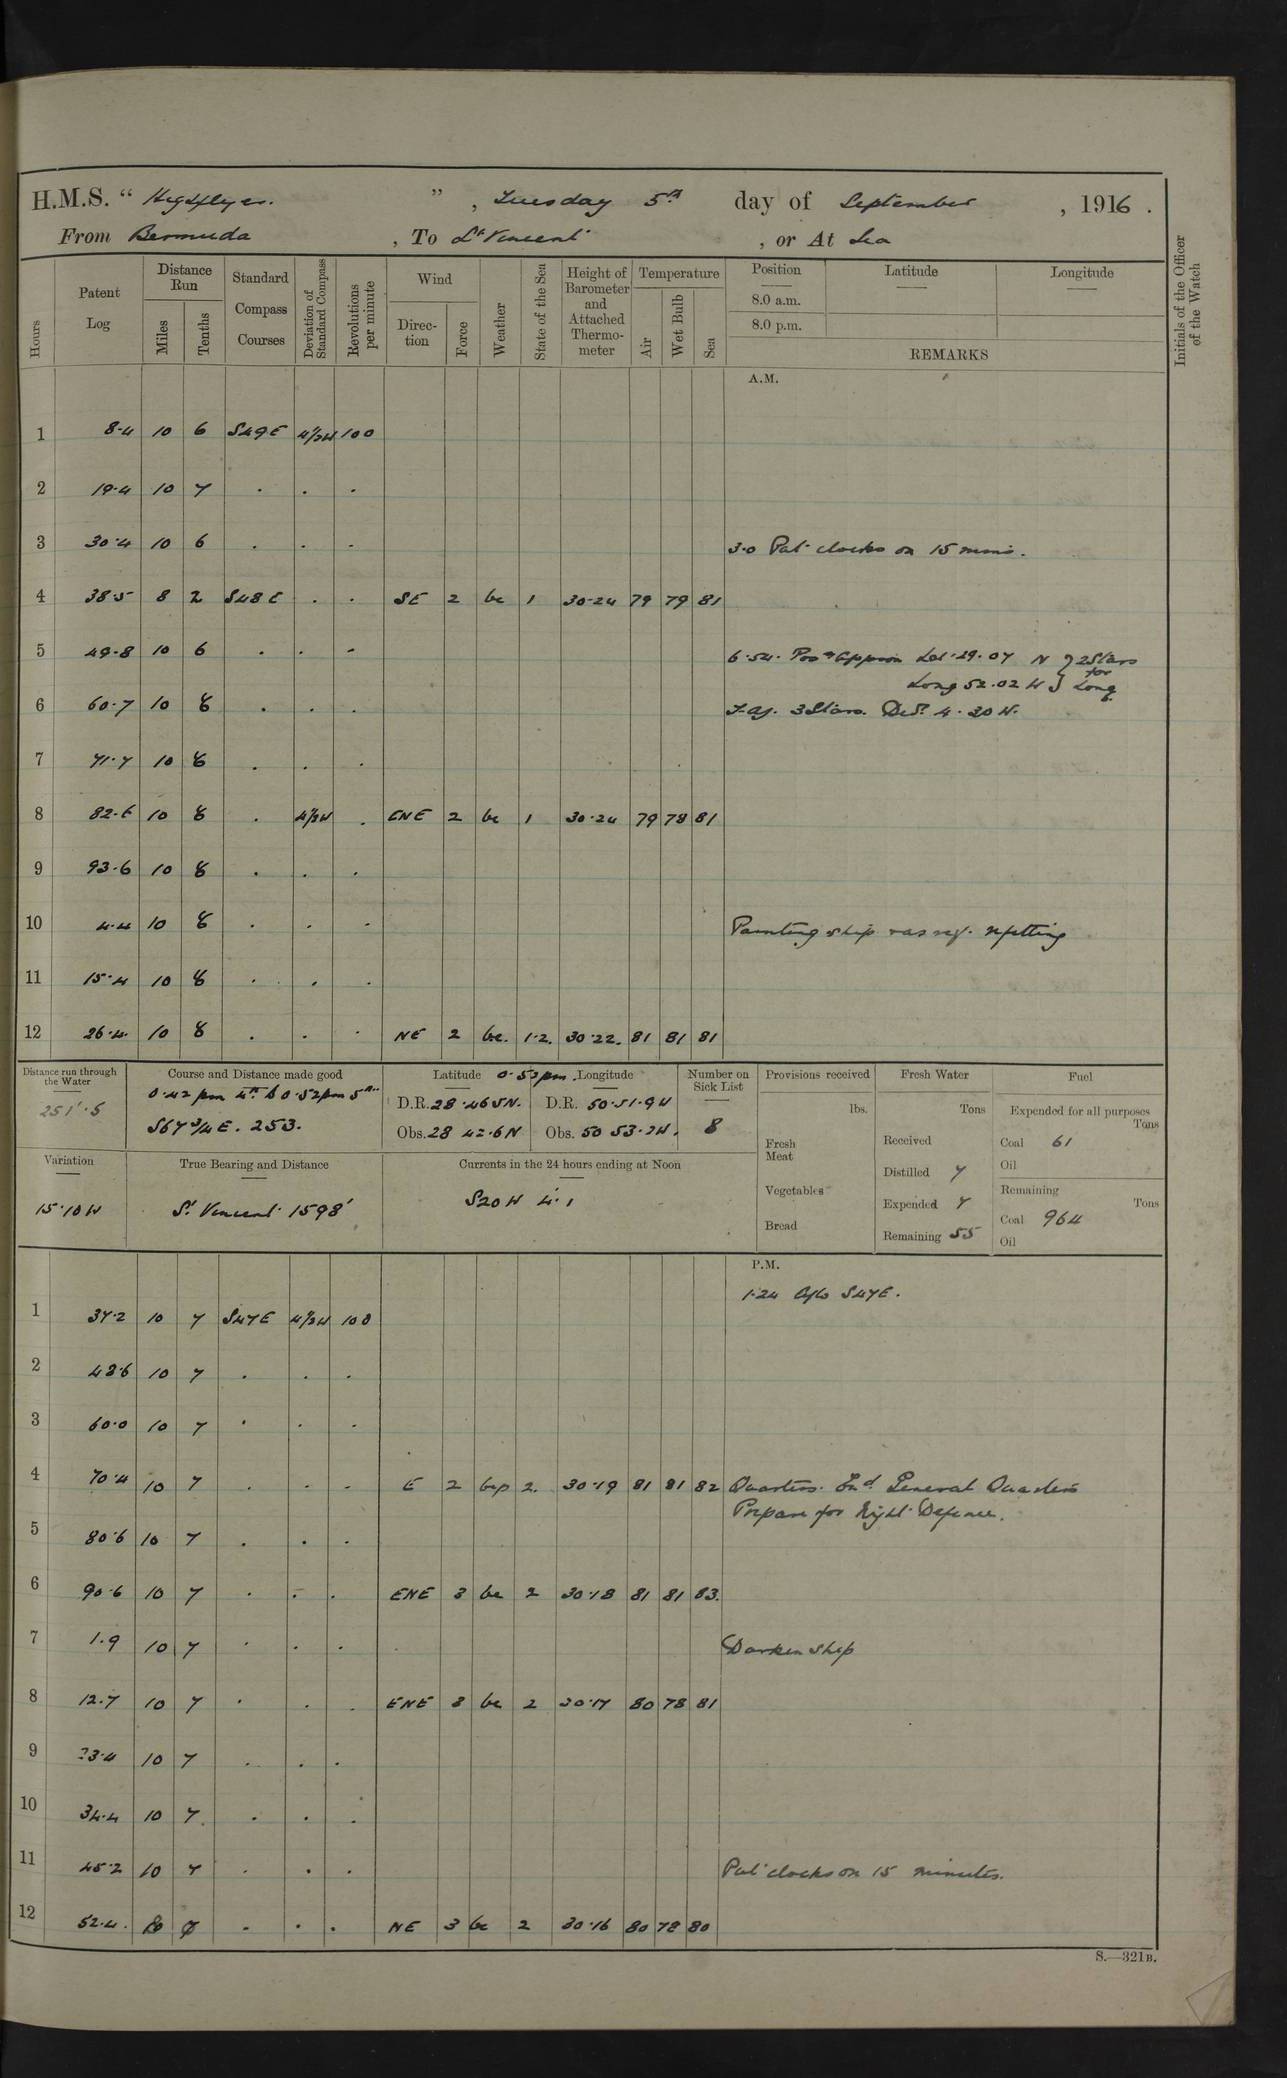 H.M.S. " Highflyer. " , Tuesday 5th day of September , 1916 .
From Bermuda , To St Vincent , or At Sea
Hours
Patent Log
Distance Run
Miles
Tenths
Standard Compass Courses
Deviation of Standard Compass
Revolutions per minute
Wind
Direc-tion
Force
Weather
State of the Sea
Height of Barometer and Attached Thermo-meter
Temperature
Air
Wet Bulb
Sea
Position
8.0 a.m.
8.0 p.m.
Latitude
Longitude
REMARKS
Initials of the Officer of the Watch
A.M.
1 8.4 10 6 S49E 4½W 100
2 19.4 10 7 . . .
3 30.4 10 6 . . . 3.0 Put clocks on 15 mins.
4 38.5 8 2 S48E . . SE 2 bc 1 30.24 79 79 81
5 49.8 10 6 . . . 6.54. Posn Approx Lat 29.07 N } 2 Stars
Long 52.02 W } for Long
6 60.7 10 8 . . . 3 Stars. Devn 4.30 W.
7 71.7 10 8 . . .
8 82.6 10 8 . 4½W . ENE 2 bc 1 30.24 79 78 81
9 93.6 10 8 . . .
10 4.4 10 8 . . . Painting ship refitting
11 15.4 10 8 . . .
12 26.4 10 8 . . . NE 2 bc. 1.2. 30.22. 81 81 81
Distance run through the Water
251'.5
Course and Distance made good
0.42 pm 4th to 0.52pm 5th
S67¾E. 253.
Latitude 0.53 pm. Longitude
D.R. 28.46.5N. D.R. 50.51.9W
Obs. 28 42.6N Obs. 50 53.2W.
Number on Sick List
8
Provisions received
lbs.
Fresh Meat
Vegetables
Bread
Fresh Water
Tons
Received
Distilled 7
Expended 7
Remaining 55
Fuel
Expended for all purposes
Tons
Coal 61
Oil
Remaining
Tons
Coal 964
Oil
Variation
15.10W
True Bearing and Distance
St Vincent 1598'
Currents in the 24 hours ending at Noon
S20W 4'.1
P.M.
1.24 A/c S47E.
1 37.2 10 7 S47E 4½W 100
2 48.6 10 7 . . .
3 60.0 10 7 . . .
4 70.4 10 7 . . . E 2 bcp 2. 30.19 81 81 82 Quarters. Exd General Quarters
Prepare for Night Defence.
5 80.6 10 7 . . .
6 90.6 10 7 . . . ENE 3 bc 2 30.18 81 81 83.
7 1.9 10 7 . . . Darken Ship
8 12.7 10 7 . . . ENE 3 bc 2 30.17 80 78 81
9 23.4 10 7 . . .
10 34.4 10 7 . . .
11 45.2 10 7 . . . Put clocks on 15 minutes.
12 52.4. . . . NE 3 bc 2 30.16 80 78 80
S.—321B.